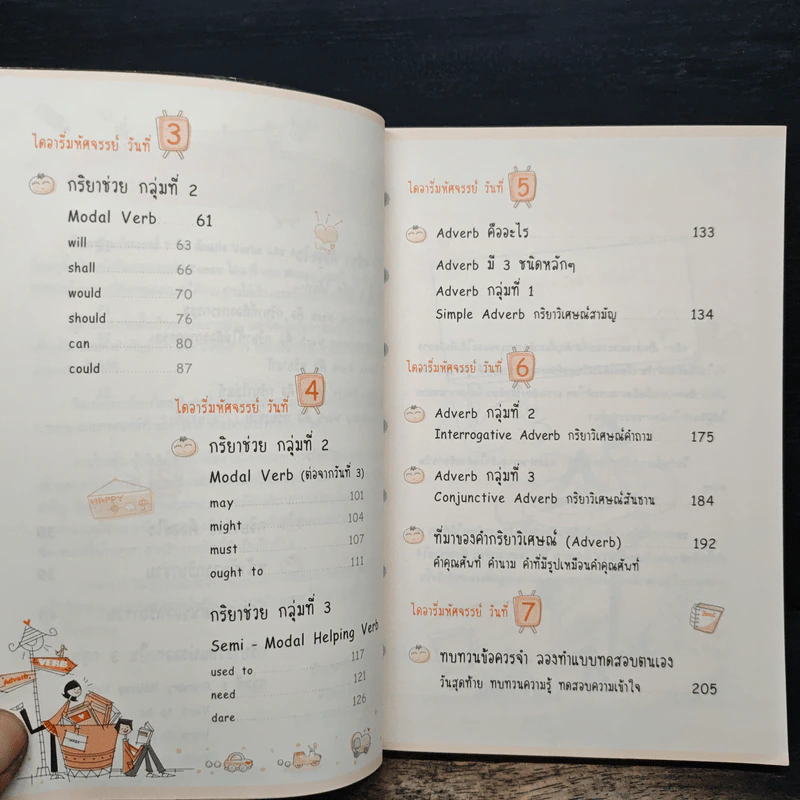 ไดอารี่มหัศจรรย์ วันที่ 3
กริยาช่วย กลุ่มที่ 2
Modal Verb 61
will 63
shall 66
would 70
should 76
can 80
could 87
ไดอารี่มหัศจรรย์ วันที่ 4
กริยาช่วย กลุ่มที่ 2
Modal Verb (ต่อจากวันที่ 3)
may 101
might 104
must 107
ought to 111
กริยาช่วย กลุ่มที่ 3
Semi - Modal Helping Verb
used to 117
need 121
dare 126
HAPPY
VERB
Adverb
ไดอารี่มหัศจรรย์ วันที่ 5
Adverb คืออะไร 133
Adverb มี 3 ชนิดหลักๆ
Adverb กลุ่มที่ 1
Simple Adverb กริยาวิเศษณ์สามัญ 134
ไดอารี่มหัศจรรย์ วันที่ 6
Adverb กลุ่มที่ 2
Interrogative Adverb กริยาวิเศษณ์คำถาม 175
Adverb กลุ่มที่ 3
Conjunctive Adverb กริยาวิเศษณ์สันธาน 184
ที่มาของคำกริยาวิเศษณ์ (Adverb) 192
คำคุณศัพท์ คำนาม คำที่มีรูปเหมือนคำคุณศัพท์
ไดอารี่มหัศจรรย์ วันที่ 7
ทบทวนข้อควรจำ ลองทำแบบทดสอบตนเอง
วันสุดท้าย ทบทวนความรู้ ทดสอบความเข้าใจ 205